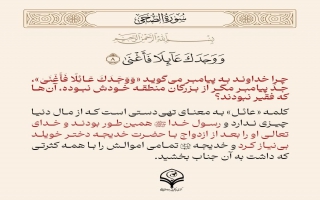 سُورَةُ الضُّحَى
بِسْمِ اللَّهِ الرَّحْمَنِ الرَّحِيمِ
وَوَجَدَكَ عَآئِلًا فَأَغْنَىٰ ۝٨
چرا خداوند به پیامبر می‌گوید «وَوَجَدَكَ عَائِلًا فَأَغْنَى»،
جد پیامبر مگر از بزرگان منطقه خودش نبوده، آن‌ها
که فقیر نبودند؟
کلمه «عائل» به معنای تهی‌دستی است که از مال دنیا
چیزی ندارد و رسول خدا ﷺ همین‌طور بودند و خدای
تعالی او را بعد از ازدواج با حضرت خدیجه دختر خویلد
بی‌نیاز کرد و خدیجه تمامی اموالش را با همه کثرتی
که داشت به آن جناب بخشید.